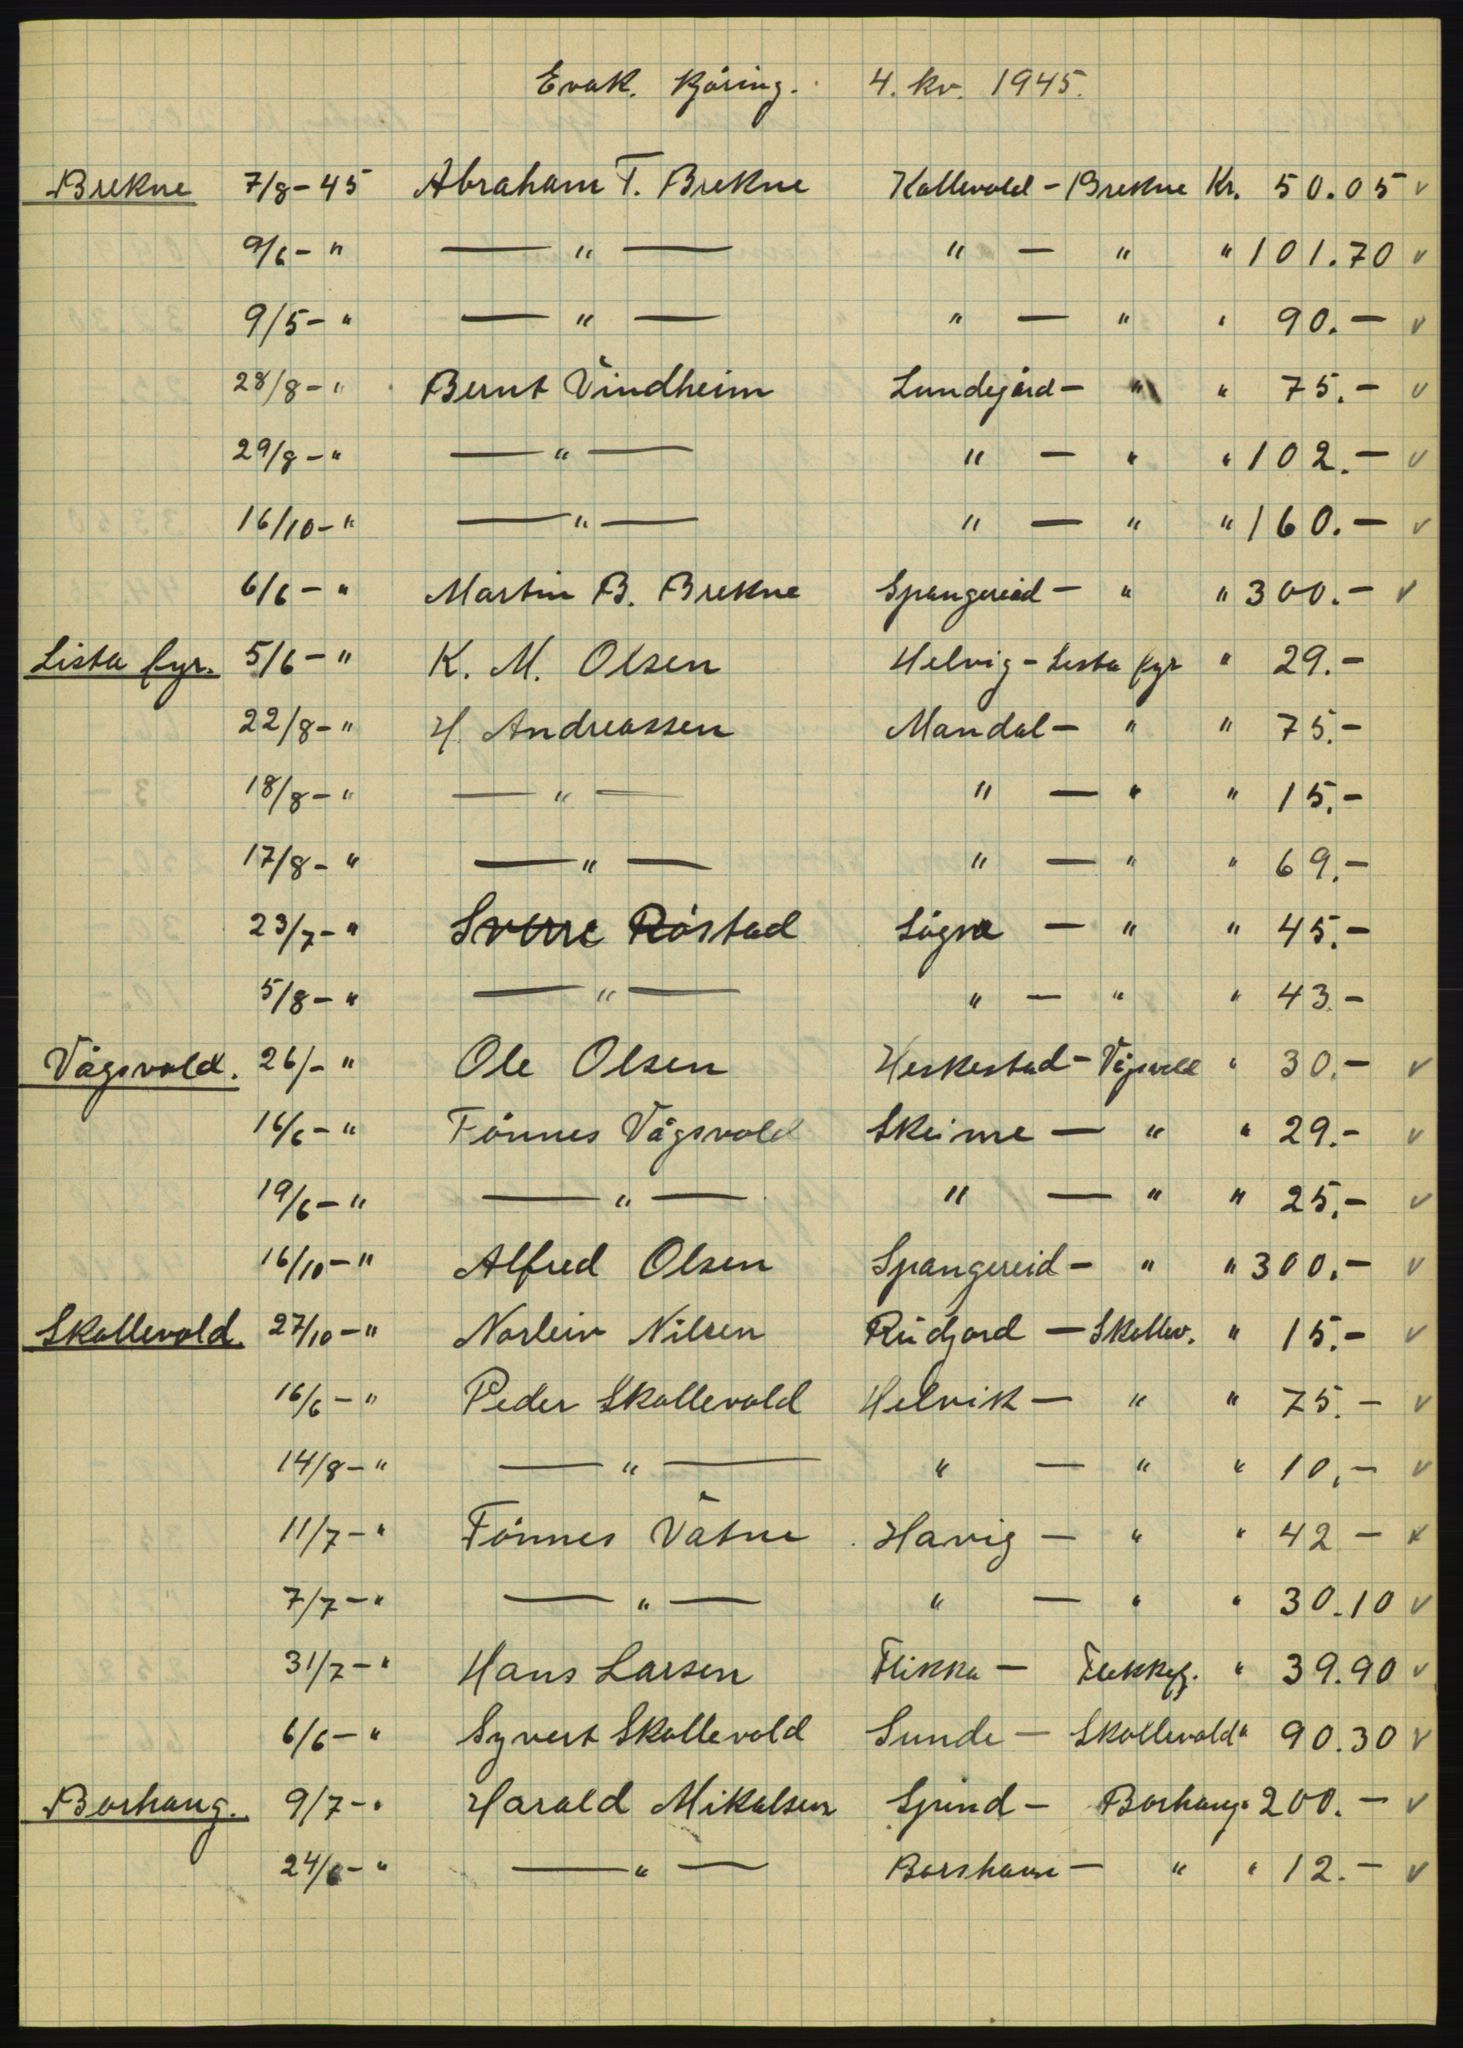 Evak. Kjöring. 4. kv. 1945.
Brekne 7/8 - 45 Abraham T. Brekne Kallevold - Brekne Kr. 50.05 v
9/6 - " — " — " — " " 101.70 v
9/5 - " — " — " — " " 90.— v
28/8 - " Bernt Vindheim Lundegård — " " 75.— v
29/8 - " — " — " — " " 102.— v
16/10 - " — " — " — " " 160.— v
6/6 - " Martin B. Brekne Spangereid — " " 300.— v
Lista fyr. 5/6 - " K. M. Olsen Helvig - Lista fyr " 29.—
22/8 - " H. Andreassen Mandal — " " 75.—
18/8 - " — " — " — " " 15.—
17/8 - " — " — " — " " 69.—
23/7 - " Sverre Röstad Sögne — " " 45.—
5/8 - " — " — " — " " 43.—
Vågsvold. 26/- " Ole Olsen Heskestad - Vågsvold " 30.— v
16/6 - " Tönnes Vågsvold Skeime — " " 29.— v
19/6 - " — " — " — " " 25.— v
16/10 - " Alfred Olsen Spangereid — " " 300.— v
Skollevold. 27/10 - " Norleiv Nilsen Rudjord — Skollev. " 15.— v
16/6 - " Peder Skollevold Helvik — " " 75.— v
14/8 - " — " — " — " " 10.— v
11/7 - " Tönnes Våtne Havig — " " 42 — v
7/7 - " — " — " — " " 30.10 v
31/7 - " Hans Larsen Flikka — Flekkefj. " 39.90 v
6/6 - " Syvert Skollevold Sunde — Skollevold " 90.30 v
Borhaug. 9/7 - " Harald Mikalsen Spind — Borhaug " 200.— v
24/6 - " — " — Borshavn — " " 12.— v